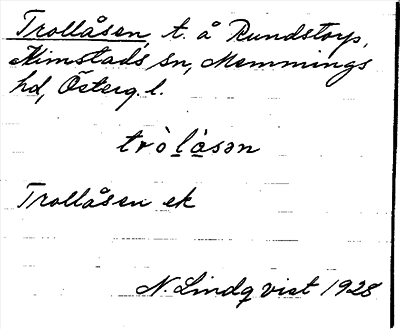 Trollåsen, t. å Rundstorp,
Kimstads sn, Memmings
hd, Österg. l.
trò̀lå̀sən
Trollåsen ek
N. Lindqvist 1928